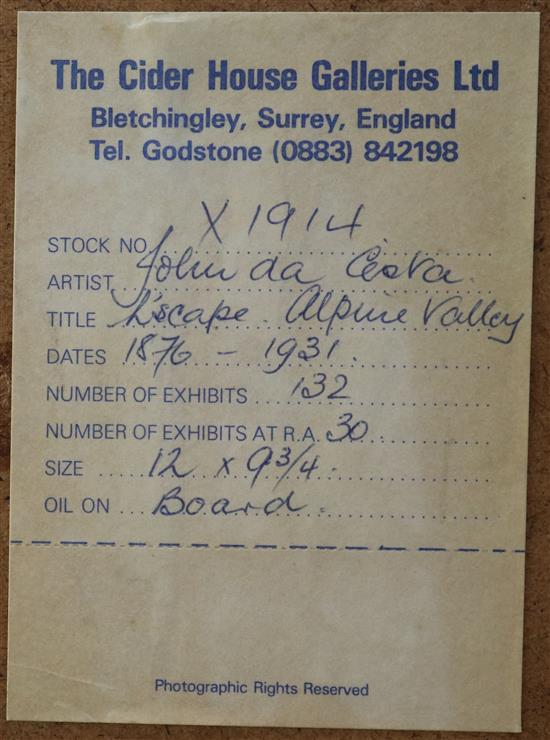 The Cider House Galleries Ltd
Bletchingley, Surrey, England
Tel. Godstone (0883) 842198
STOCK NO. X 1914
ARTIST John da Costa
TITLE L'scape. Alpine Valley
DATES 1876 – 1931.
NUMBER OF EXHIBITS 132
NUMBER OF EXHIBITS AT R.A. 30
SIZE 12 x 9 3/4.
OIL ON Board.
Photographic Rights Reserved